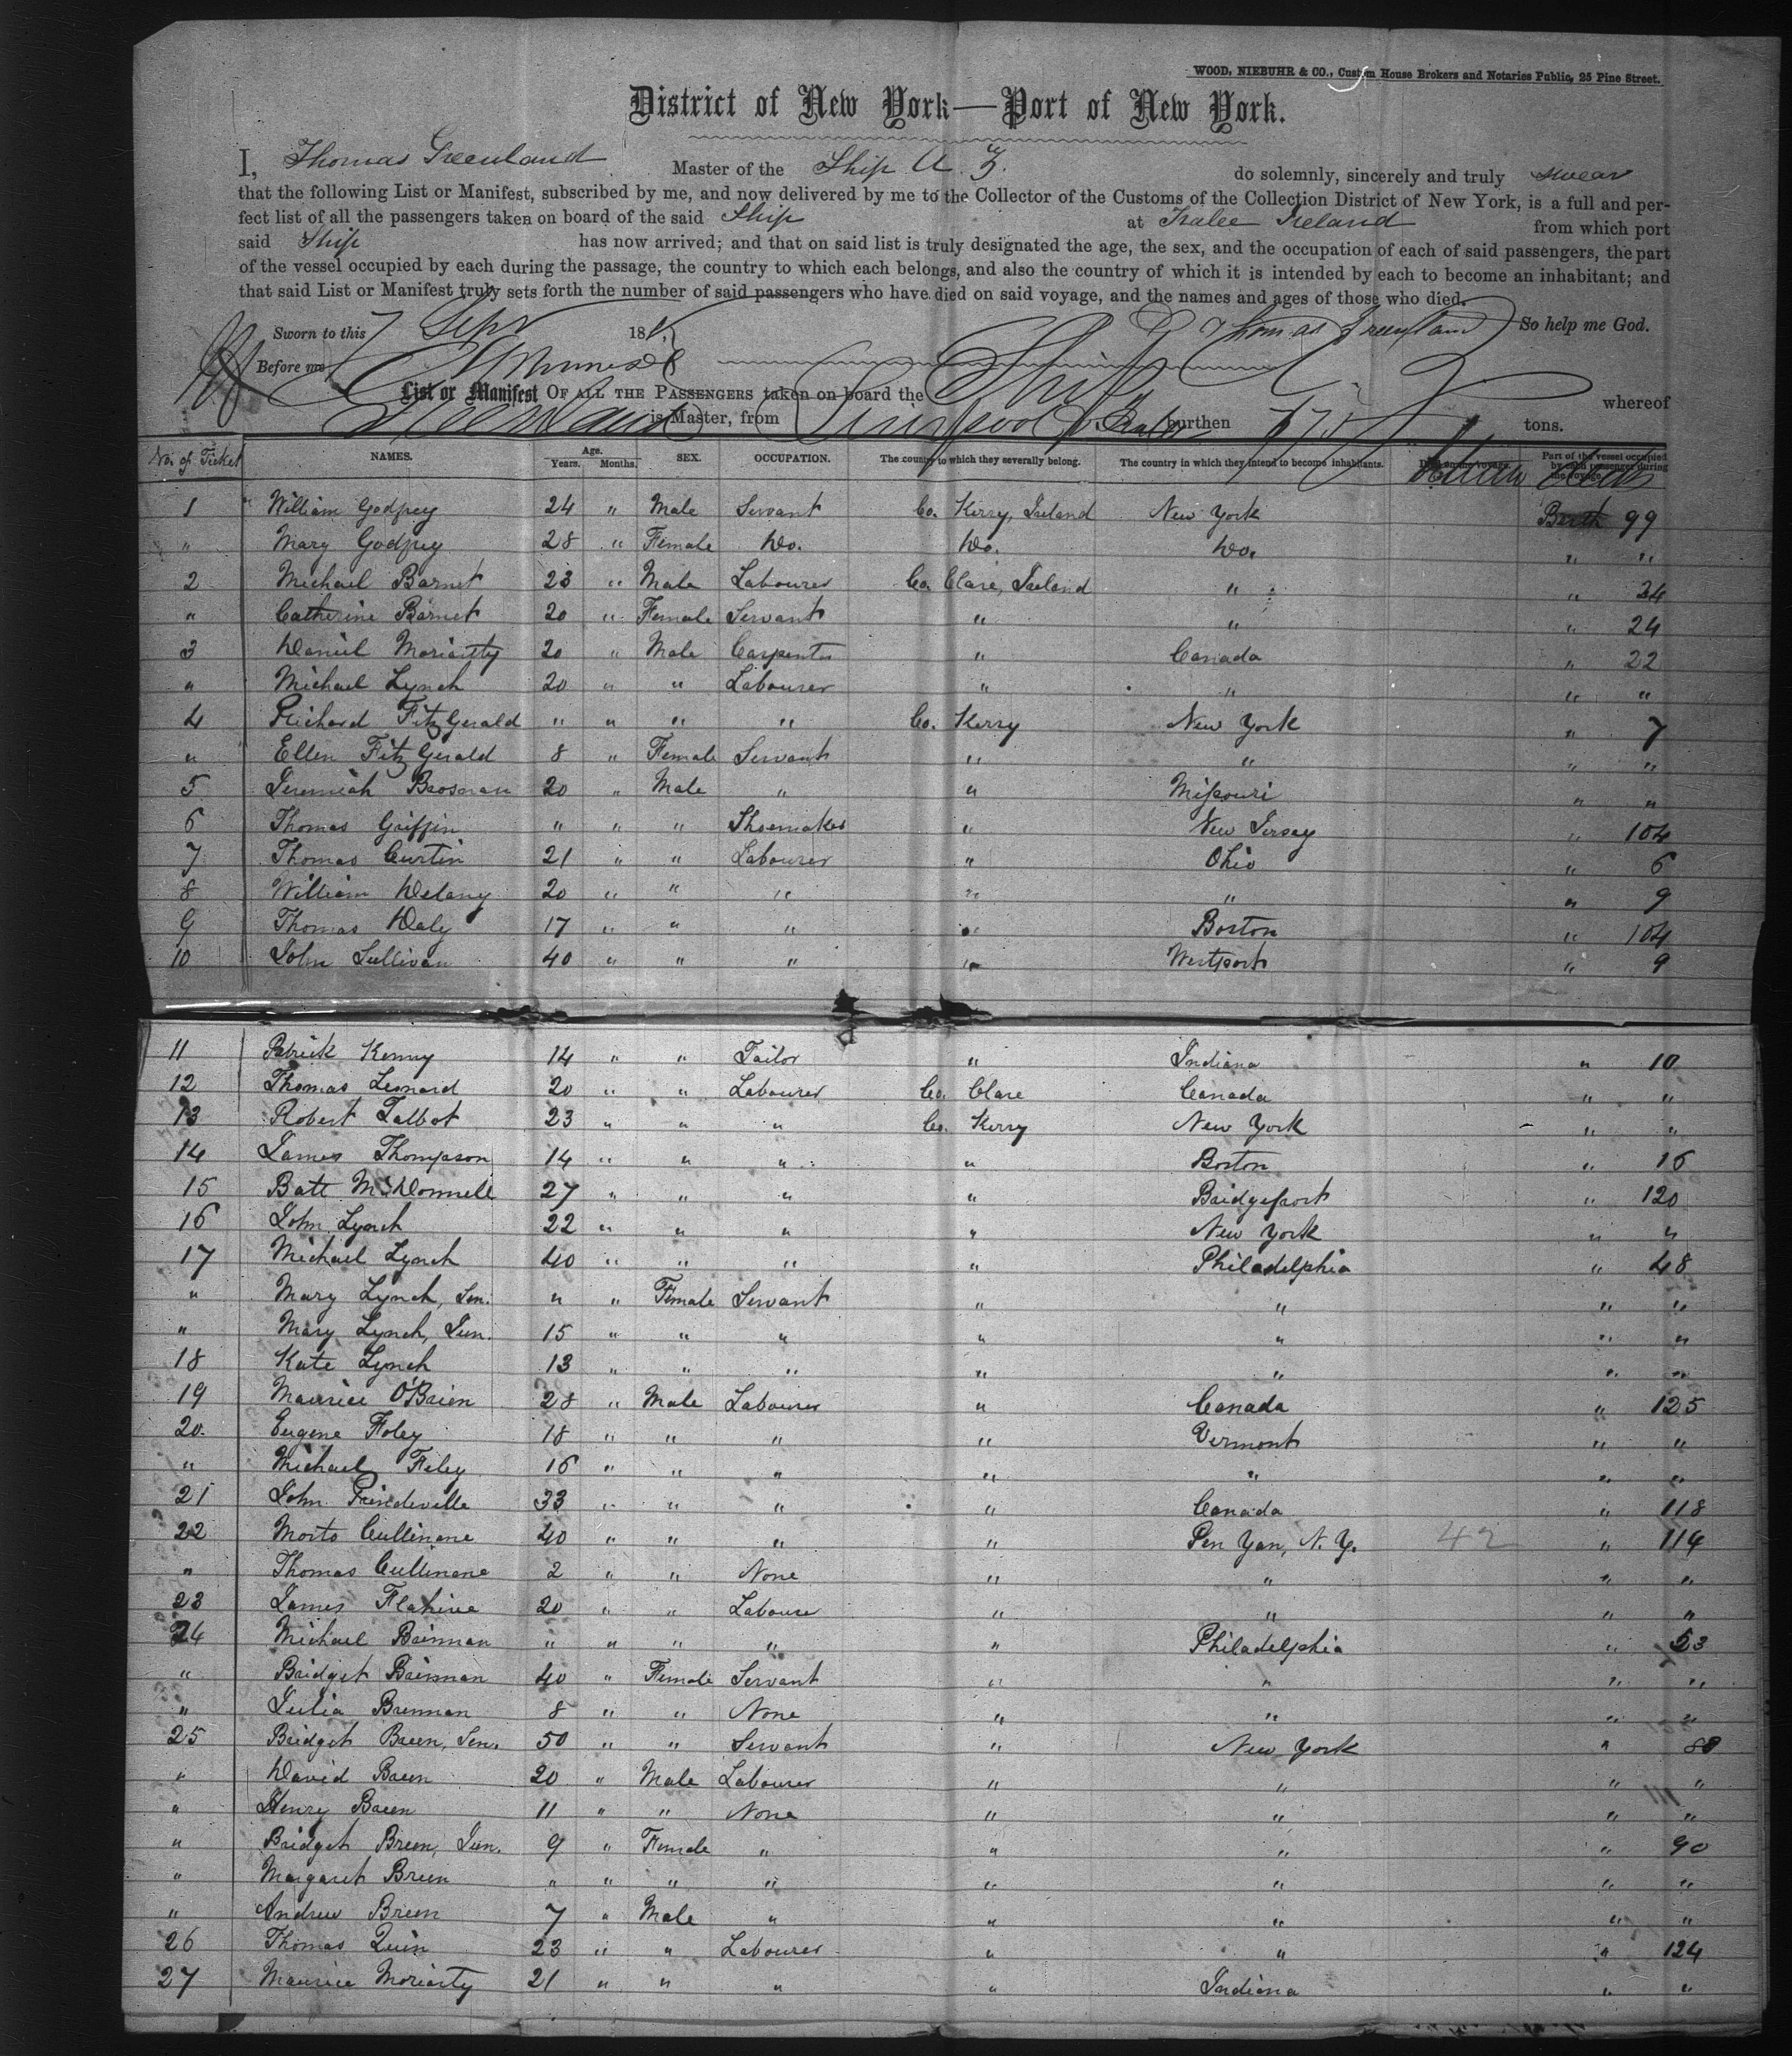 WOOD, NIEBUHR & CO., Custom House Brokers and Notaries Public, 25 Pine Street.
District of New York—Port of New York.
I, Thomas Greenland Master of the Ship A. Z. do solemnly, sincerely and truly swear
that the following List or Manifest, subscribed by me, and now delivered by me to the Collector of the Customs of the Collection District of New York, is a full and per-
fect list of all the passengers taken on board of the said Ship at Tralee Ireland from which port
said Ship has now arrived; and that on said list is truly designated the age, the sex, and the occupation of each of said passengers, the part
of the vessel occupied by each during the passage, the country to which each belongs, and also the country of which it is intended by each to become an inhabitant; and
that said List or Manifest truly sets forth the number of said passengers who have died on said voyage, and the names and ages of those who died.
Sworn to this 7 Sepr 18 Thomas Greenland So help me God.
Before me
List or Manifest OF ALL THE PASSENGERS taken on board the Ship A. Z. whereof
Greenland is Master, from Liverpool & Tralee burthen 675 tons.
No. of Ticket NAMES. Age. Years. Months. SEX. OCCUPATION. The country to which they severally belong. The country in which they intend to become inhabitants. Died on the voyage. Part of the vessel occupied by each passenger during the voyage.
1 William Godfrey 24 " Male Servant Co. Kerry, Ireland New York Berth 99
" Mary Godfrey 28 " Female Do. Do. Do. " "
2 Michael Barnet 23 " Male Labourer Co. Clare, Ireland " " 24
" Catherine Barnet 20 " Female Servant " " " 24
3 Daniel Moriartty 20 " Male Carpenter " Canada " 22
" Michael Lynch 20 " " Labourer " " " "
4 Richard FitzGerald " " " " Co. Kerry New York " 7
" Ellen FitzGerald 8 " Female Servant " " " "
5 Jeremiah Brosnan 20 " Male " " Missouri " "
6 Thomas Griffin " " " Shoemaker " New Jersey " 104
7 Thomas Curtin 21 " " Labourer " Ohio " 6
8 William Delany 20 " " " " " " 9
9 Thomas Daly 17 " " " " Boston " 104
10 John Sullivan 40 " " " " Westport " 9
11 Patrick Kenny 14 " " Tailor " Indiana " 10
12 Thomas Leonard 20 " " Labourer Co. Clare Canada " "
13 Robert Talbot 23 " " " Co. Kerry New York " "
14 James Thompson 14 " " " " Boston " 16
15 Batt McDonnell 27 " " " " Bridgeport " 120
16 John Lynch 22 " " " " New York " "
17 Michael Lynch 40 " " " " Philadelphia " 48
" Mary Lynch, Sen. " " Female Servant " " " "
" Mary Lynch, Jun. 15 " " " " " " "
18 Kate Lynch 13 " " " " " " "
19 Maurice O'Brien 28 " Male Labourer " Canada " 125
20. Eugene Foley 18 " " " " Vermont " "
" Michael Foley 16 " " " " " " "
21 John Prindeville 33 " " " " Canada " 118
22 Morto Cullinane 40 " " " " Pen Yan, N. Y. 42 " 114
" Thomas Cullinane 2 " " None " " " "
23 James Flahive 20 " " Labourer " " " "
24 Michael Brinnan " " " " " Philadelphia " 53
" Bridget Brinnan 40 " Female Servant " " " "
" Julia Brennan 8 " " None " " " "
25 Bridget Breen, Sen. 50 " " Servant " New York " 88
" David Breen 20 " Male Labourer " " " "
" Henry Breen 11 " " None " " " "
" Bridget Breen, Jun. 9 " Female " " " " 90
" Margaret Breen " " " " " " " "
" Andrew Breen 7 " Male " " " " "
26 Thomas Quin 23 " " Labourer " " " 124
27 Maurice Moriarty 21 " " " " Indiana " "